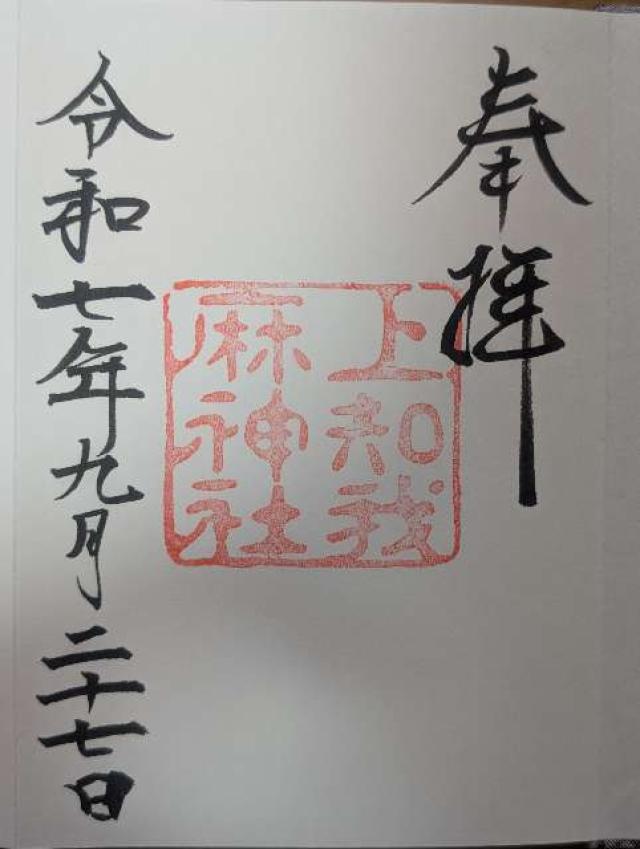 奉拝
上知我
麻神社
令和七年九月二十七日